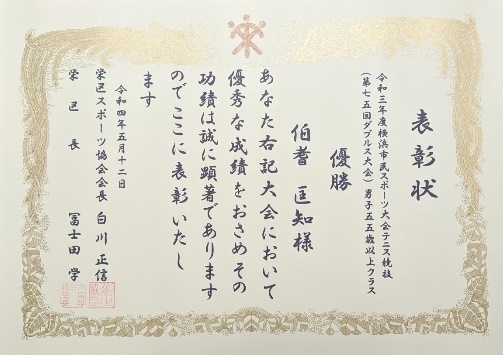 表彰状
令和三年度横浜市民スポーツ大会テニス競技
(第七五回ダブルス大会) 男子五五歳以上クラス
優勝
伯耆 匡知様
あなた右記大会において
優秀な成績をおさめその
功績は誠に顕著であります
のでここに表彰いたし
ます
令和四年五月十二日
栄区スポーツ協会会長 白川 正信
栄区長 冨士田 学